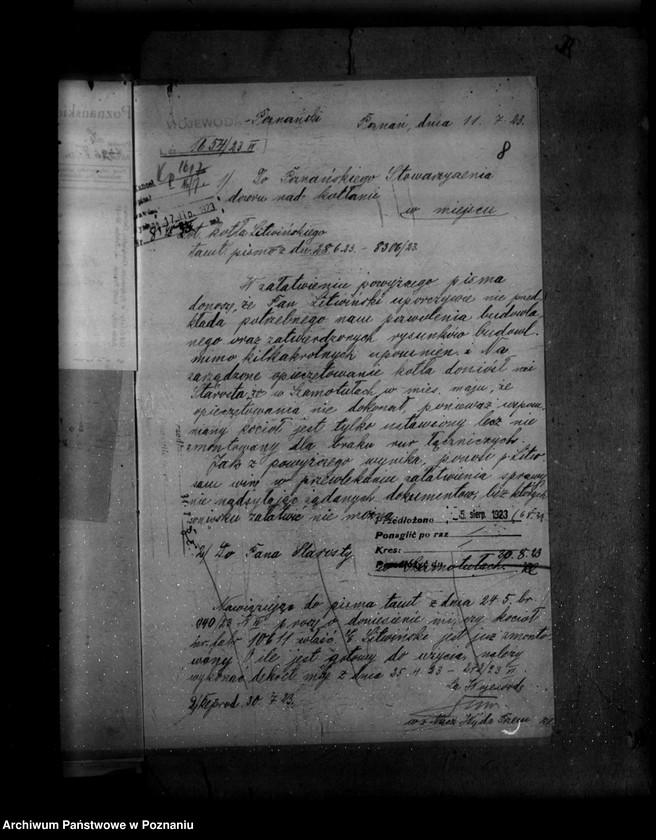 Poznańskie
WOJEWODA Poznański Poznań, dnia 11. 7. 23.
L. 1654/23 II
8
1/ Do Poznańskiego Stowarzyszenia
dozoru nad kotłami
w miejscu
kotła Litwińskiego
tamt. pismo z dn. 28.6.23. - 8306/23.
W załatwieniu powyższego pisma
donoszę, że Pan Litwiński uporczywie nie przed
kłada potrzebnego nam pozwolenia budowla
nego oraz zatwierdzonych rysunków budowl.
mimo kilkakrotnych upomnień. Na
zarządzone opieczętowanie kotła doniósł mi
Starosta w Szamotułach, w mies. maju, że
opieczętowania nie dokonał, ponieważ wspom
niany kocioł jest tylko ustawiony lecz nie
zmontowany dla braku rur łączniczych.
Jak z powyższego wynika, ponosi p. Litw
sam winę w przewlekaniu załatwienia sprawy
nie nadsyłając żądanych dokumentów, bez których
wniosku załatwić nie można
Przedłożono 5. sierp. 1923
Ponaglić po raz
Kres: 20.8.23
2/ Do Pana Starosty
w Szamotułach
Nawiązując do pisma tamt. z dnia 24.5. br.
proszę o doniesienie mi, czy kocioł
nr. fabr. 10611 właśc. Litwiński jest już zmonto
wany i ile jest gotowy do użycia, należy
wykonać dekret mój z dnia
Za Wojewodę
3/ Reprod. 30. 7. 23.
Archiwum Państwowe w Poznaniu